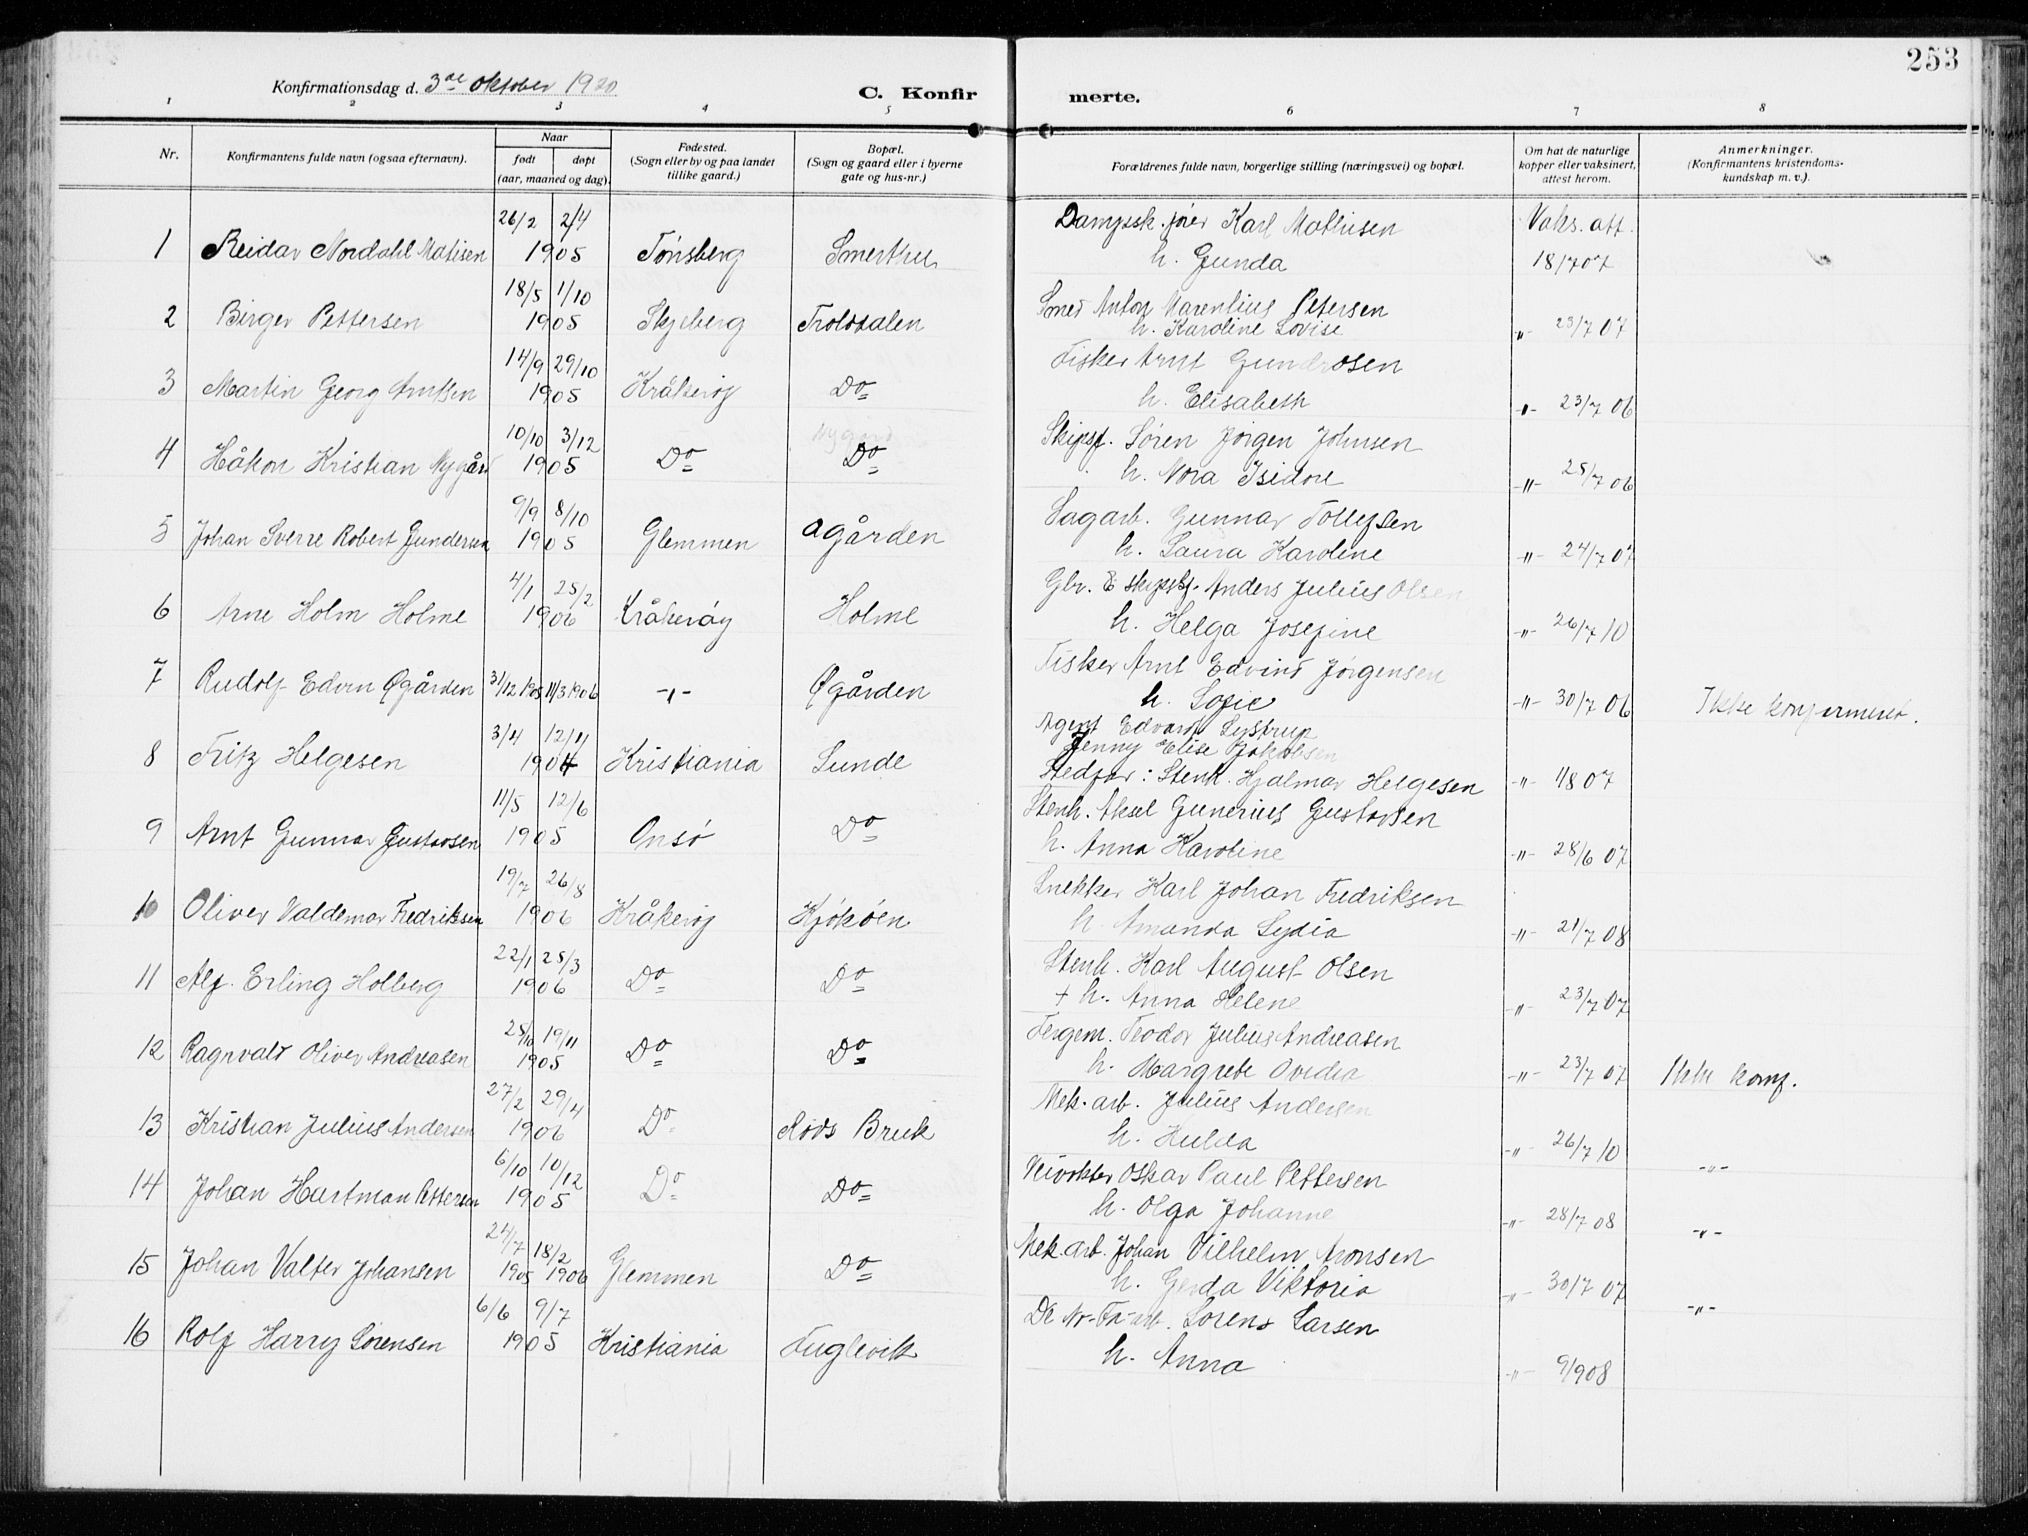 253
Konfirmationsdag d. 3de Oktober 1920
C. Konfir merte.
1 2 3 4 5 6 7 8
Nr.
Konfirmantens fulde navn (ogsaa efternavn).
Naar
født døpt
(aar, maaned og dag).
Fødested.
(Sogn eller by og paa landet
tillike gaard.)
Bopæl.
(Sogn og gaard eller i byerne
gate og hus-nr.)
Forældrenes fulde navn, borgerlige stilling (næringsvei) og bopæl.
Om hat de naturlige
kopper eller vaksinert,
attest herom.
Anmerkninger.
(Konfirmantens kristendoms-
kundskap m. v.).
26/2 2/4 Dampssk. fører Karl Mathisen Vaks. att.
1 Reidar Nordahl Matisen 1905 Tønsberg Smerthu h. Gunda 18/7 07
18/5 1/10 Smed Anton Marentius Petersen
2 Birger Pettersen 1905 Skjeberg Troldalen h. Karoline Lovise -"- 23/7 07
14/9 29/10 Fisker Arnt Gundrosen
3 Martin Georg Arntsen 1905 Kråkerøy Do h. Elisabeth -"- 23/7 06
10/10 3/12 Nygård Skipsf. Søren Jørgen Johnsen
4 Håkon Kristian Nygård 1905 Do Do h. Nora Isidore -"- 25/7 06
9/9 8/10 Sagarb. Gunnar Tollefsen
5 Johan Sverre Robert Gundersen 1905 Glemmen Ågården h. Laura Karoline -"- 24/7 07
4/1 25/2 Gbr. & skipsbf. Anders Julius Olsen
6 Arne Holm Holme 1906 Kråkerøy Holme h. Helga Josefine -"- 26/7 10
Fisker Arnt Edvind Jørgensen
7 Rudolf Edvin Øgården 31/12 1905 11/3 1906 -"- Øgården h. Sofie -"- 30/7 06 Ikke konfirmeret.
Agent Edvard Systrup
3/4 12/11 Jenny Elise Jakobsen
8 Fritz Helgesen 1904 Kristiania Lunde Stedfar: Stenh. Hjalmar Helgesen -"- 1/8 07
11/5 12/6 Stenh. Aksel Gunerius Gustavsen
9 Arnt Gunnar Gustavsen 1905 Onsø Do h. Anna Karoline -"- 28/6 07
19/7 26/8 Snekker Karl Johan Fredriksen
10 Oliver Valdemar Fredriksen 1906 Kråkerøy Kjøkøen h. Amanda Lydia -"- 21/7 08
22/1 25/3 Stenh. Karl August Olsen
11 Alf Erling Holberg 1906 Do Do + h. Anna Helene -"- 23/7 07
25/10 19/11 Fergem. Teodor Julius Andreasen
12 Ragnvald Oliver Andreasen 1905 Do Do h. Margrete Ovidia -"- 23/7 07 Ikke konf.
27/2 29/4 Mek. arb. Julius Andersen
13 Kristian Julius Andersen 1906 Do Røds Bruk h. Hulda -"- 26/7 10 -"-
6/10 10/12 Veivokter Oskar Paul Pettersen
14 Johan Hartman Pettersen 1905 Do Do h. Olga Johanne -"- 28/7 08 -"-
24/7 18/2 Mek. arb. Johan Vilhelm Aronsen
15 Johan Valter Johansen 1905 1906 Glemmen Do h. Gerda Viktoria -"- 30/7 07 -"-
6/6 9/7 Lorens Larsen
16 Rolf Harry Lorensen 1905 Kristiania Fuglevik h. Anna -"- 9/9 08